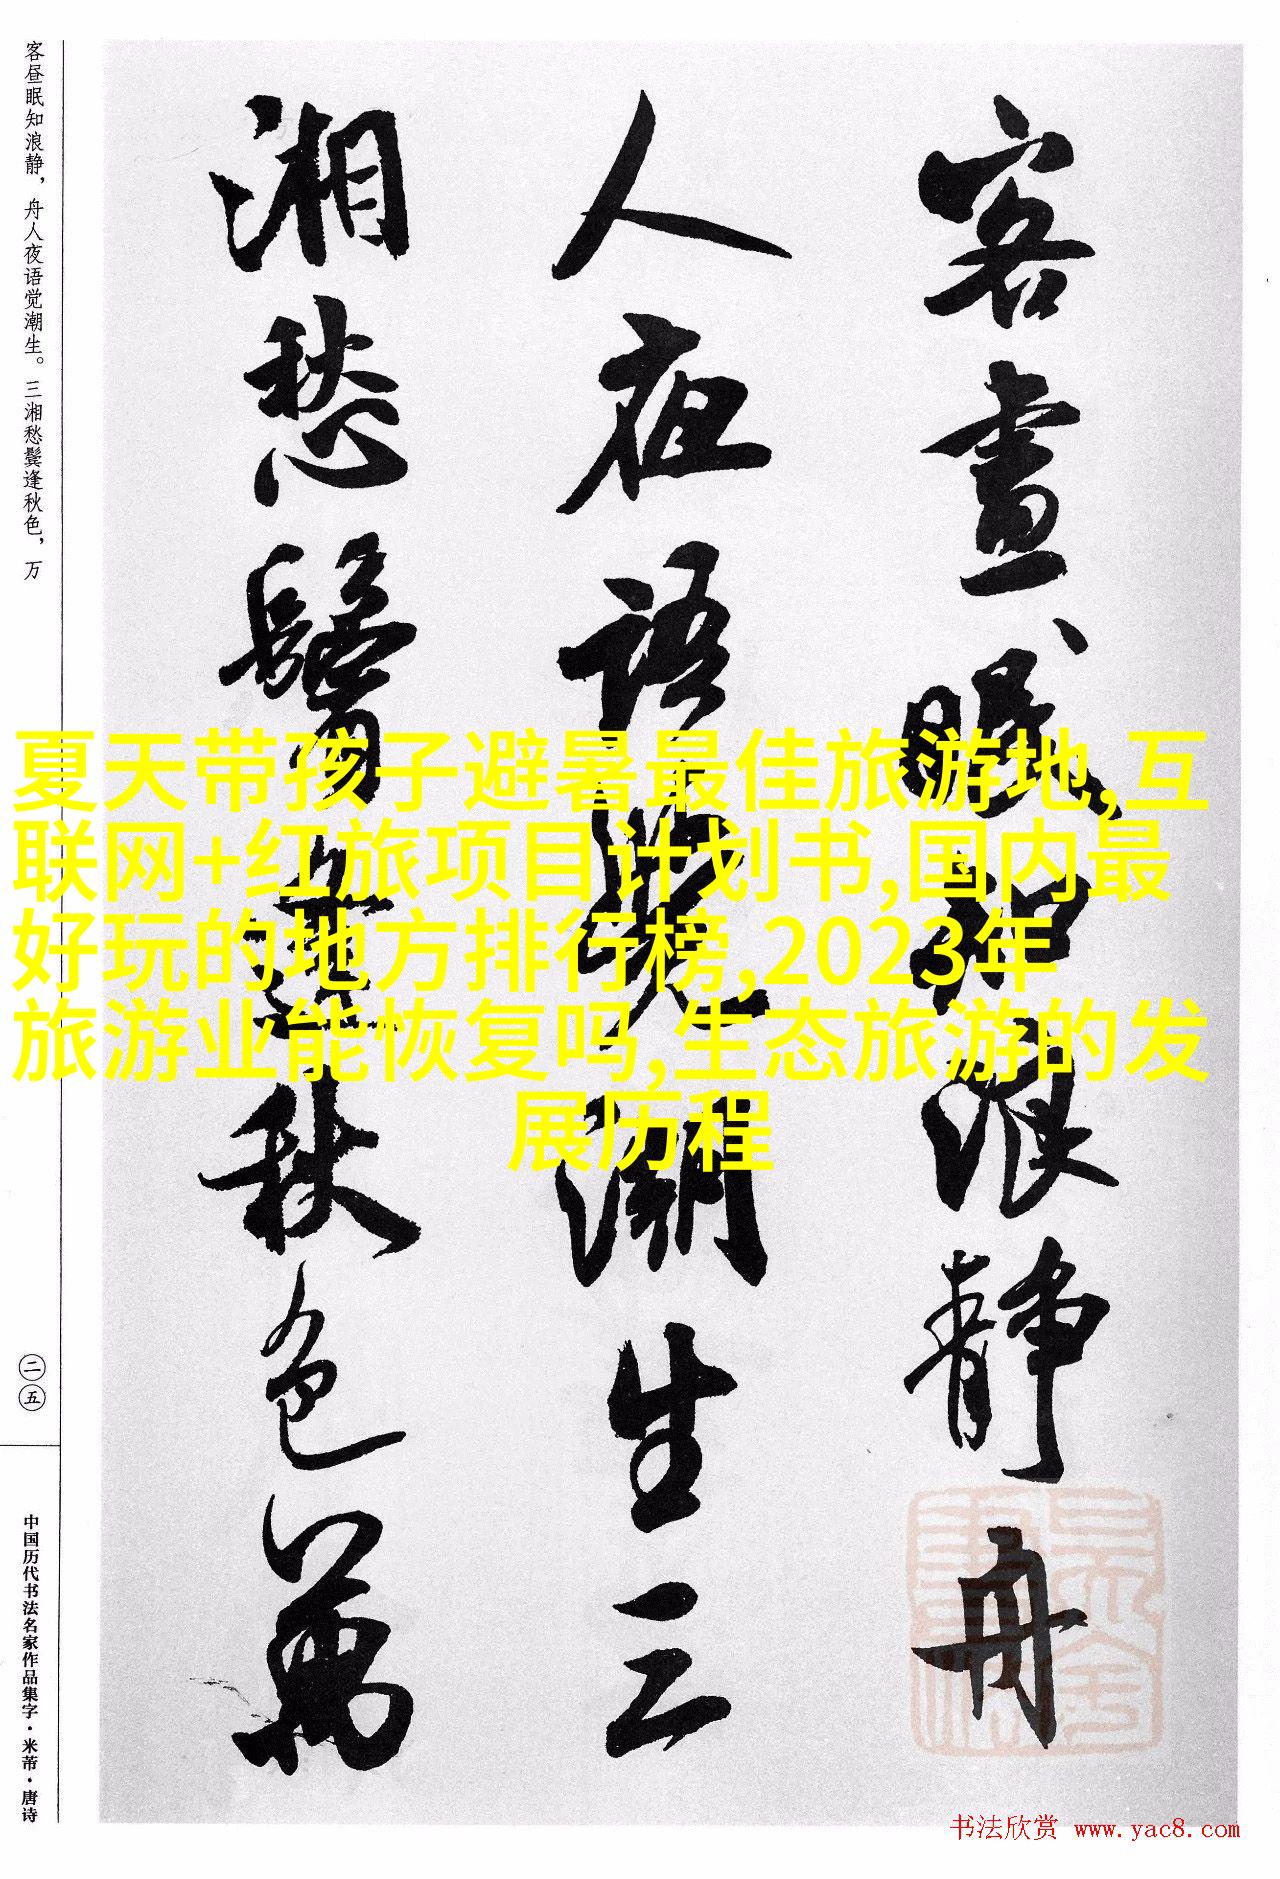 客昼眠知浪静，舟人夜语觉潮生。三湘愁鬓逢秋色，万
客晝眠知浪静舟
人夜语覺潮生三
湘愁鬢逢秋色萬
夏天带孩子避暑最佳旅游地,互
联网+红旅项目计划书,国内最
好玩的地方排行榜,2023年
旅游业能恢复吗,生态旅游的发
展历程
二五
中国历代书法名家作品集字·米芾·唐诗
书法欣赏 www.yac8.com